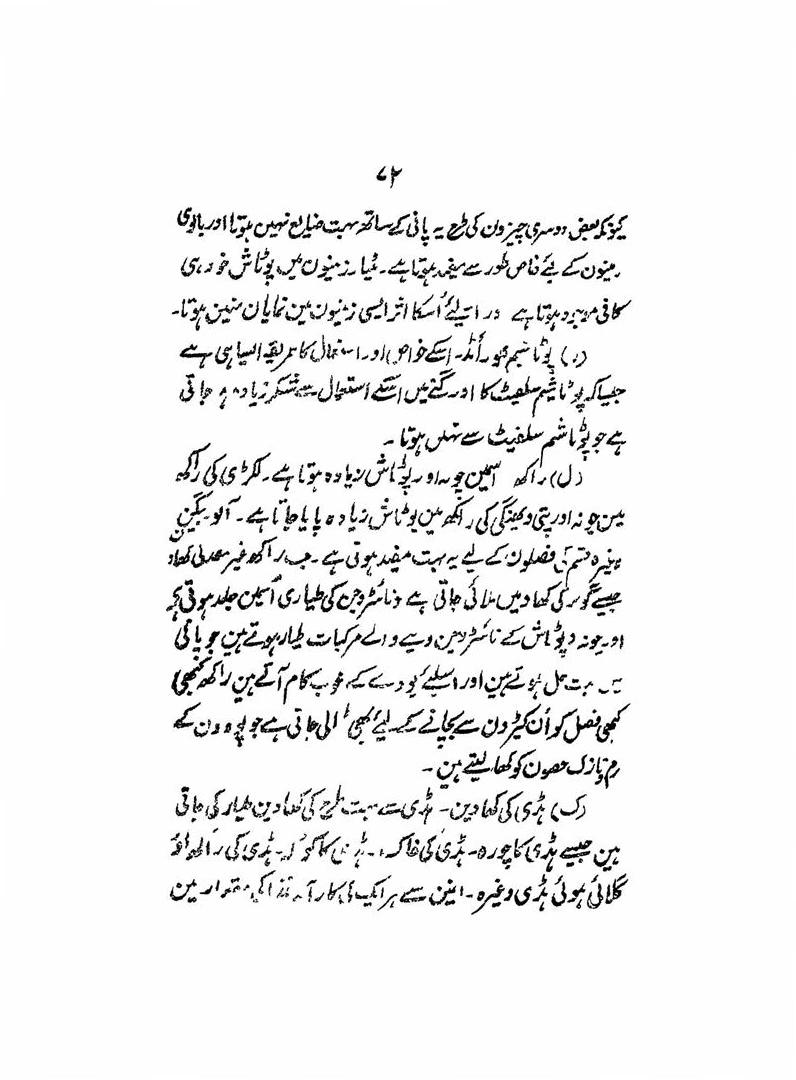 ۷۲
کیونکہ بعض دوسری چیزون کی طرح یہ پانی کے ساتھہ بہت ضایع نہین ہوتا اور بالوی
زمینون کے لیے خاص طور سے مفید ہوتا ہے۔ مٹیار زمینون مین پوٹاش خود ہی
کافی موجود ہوتا ہے اور اسلیٔے اُسکا اثر ایسی زمینون مین نمایان نہین ہوتا۔
پوٹاشیم میورائڈ۔ اسکے خواص اور استعمال کا طریقہ ایسا ہی ہے
جیسا کہ پوٹاشیم سلفیٹ کا اور گنے مین اسکے استعمال سے شکر زیادہ ہو جاتی
ہے جو پوٹاشم سلفیٹ سے نہین ہوتا۔
(ل) راکھہ اسمین چونہ اور پوٹاش زیادہ ہوتا ہے۔ لکڑی کی راکھہ
مین چونہ اور پتی و ٹہنگی کی راکھہ مین پوٹاش زیادہ پایا جاتا ہے۔ آلو بیگن
وغیرہ قسم کی فصلون کے لیے یہ بہت مفید ہوتی ہے۔ جب راکھہ غیر معدنی کھاد
جیسے گوبر کی کھاد مین ملائی جاتی ہے تو نائٹروجن کی طیاری اُسمین جلد ہوتی ہے
اور چونہ و پوٹاش کے نائٹروجن دینے والے مرکبات طیار ہوتے ہین جو پانی
مین بہت حل ہوتے ہین اور اسلیٔے پودے کے خوب کام آتے ہین راکھہ کبھی
کبھی فصل کو اُن کیڑون سے بچانے کے لیٔے بھی ڈالی جاتی ہے جو پودون کے
نرم و نازک حصون کو کھا لیتے ہین۔
(ک) ہڈی کی کھادین۔ ہڈی سے بہت طرح کی کھادین طیار کی جاتی
ہین جیسے ہڈی کا چورہ۔ ہڈی کی خاک۔ ہڈی کا کوئلہ۔ ہڈی کی راکھہ اور
گلائی ہوئی ہڈی وغیرہ۔ انمین سے ہر ایک کی کارآمد غذا کی مقدار مین